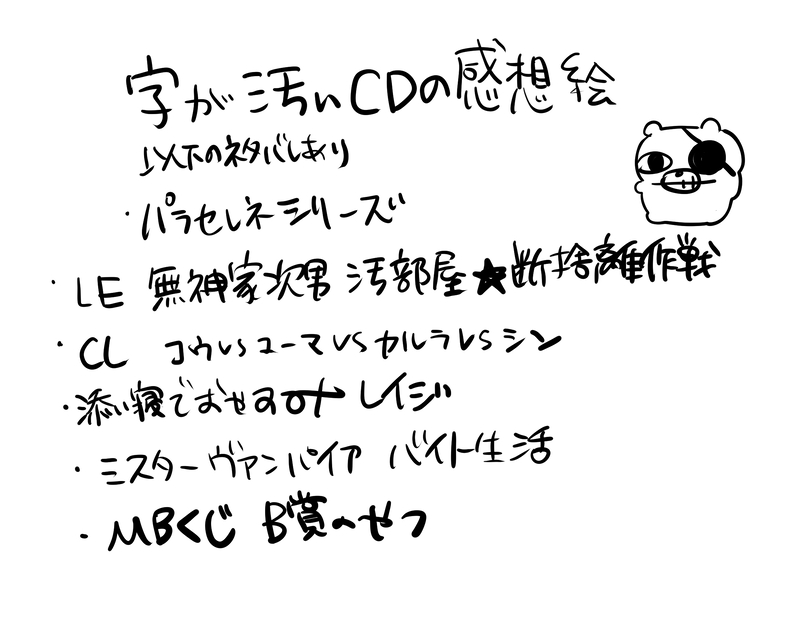 字が汚いCDの感想絵
以下のネタバレあり
・パラセレネシリーズ
・LE 無神家次男 汚部屋★断捨離作戦
・CL コウvsユーマvsカルラvsシン
・添い寝でおやすみ レイジ
・ミスターヴァンパイア バイト生活
・MBくじ B賞のやつ